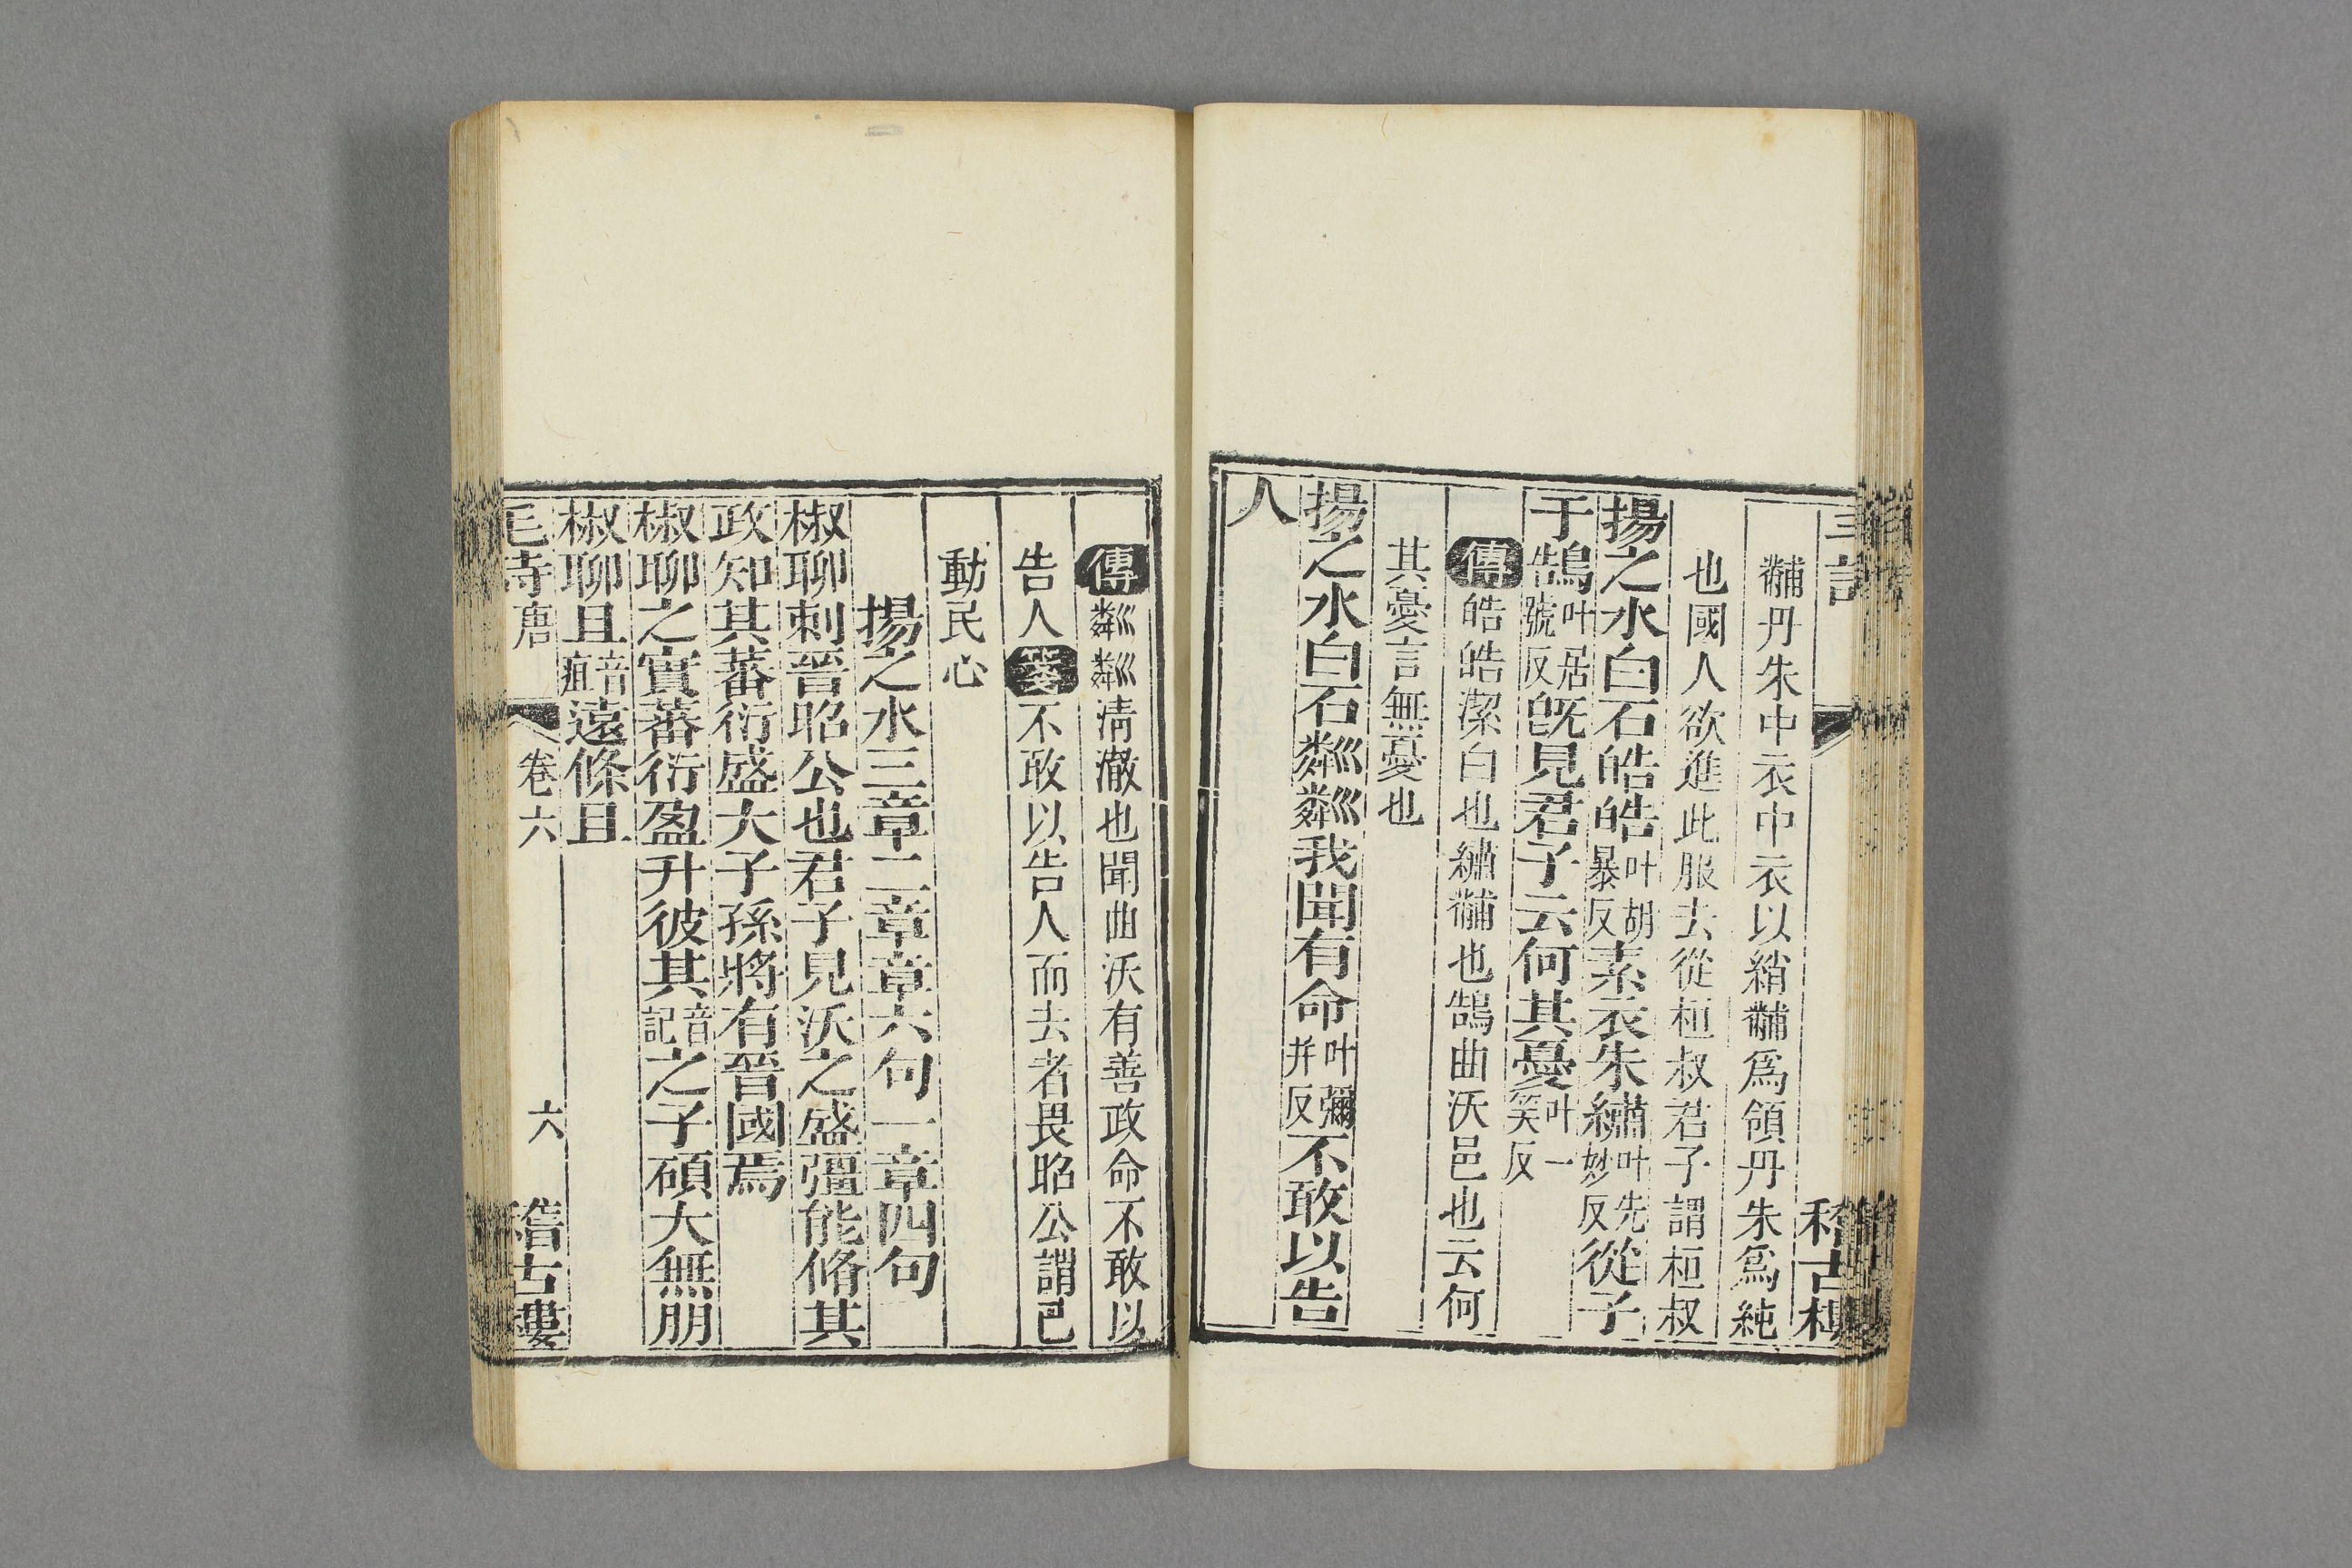 稽古樓
黼丹朱中衣中衣以綃黼爲領丹朱爲純
也國人欲進此服去從桓叔君子謂桓叔
揚之水白石皓皓叶胡暴反素衣朱繡叶先妙反從子
于鵠叶居號反既見君子云何其憂叶一笑反
傳皓皓潔白也繡黼也鵠曲沃邑也云何
其憂言無憂也
揚之水白石粼粼我聞有命叶彌并反不敢以告
人
傳粼粼清澈也聞曲沃有善政命不敢以
告人箋不敢以告人而去者畏昭公謂已
動民心
揚之水三章二章章六句一章四句
椒聊刺晉昭公也君子見沃之盛彊能脩其
政知其蕃衍盛大子孫將有晉國焉
椒聊之實蕃衍盈升彼其音記之子碩大無朋
椒聊且音疽遠條且
毛詩唐 卷六 六 稽古樓